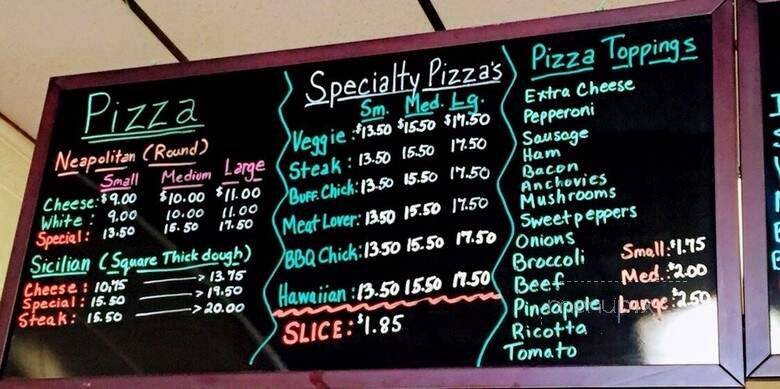 Pizza
Neapolitan (Round)
Small Medium Large
Cheese: $9.00 $10.00 $11.00
White: 9.00 10.00 11.00
Special: 13.50 15.50 17.50
Sicilian (Square Thick dough)
Cheese: 10.75 → 13.75
Special: 15.50 → 19.50
Steak: 15.50 → 20.00
Specialty Pizza's
Sm. Med. Lg.
Veggie: $13.50 $15.50 $17.50
Steak: 13.50 15.50 17.50
Buff. Chick: 13.50 15.50 17.50
Meat Lover: 13.50 15.50 17.50
BBQ Chick: 13.50 15.50 17.50
Hawaiian: 13.50 15.50 17.50
SLICE: $1.85
Pizza Toppings
Extra Cheese
Pepperoni
Sausage
Ham
Bacon
Anchovies
Mushrooms
Sweet peppers
Onions
Broccoli
Beef
Pineapple
Ricotta
Tomato
Small: $1.75
Med. $2.00
Large: $2.50